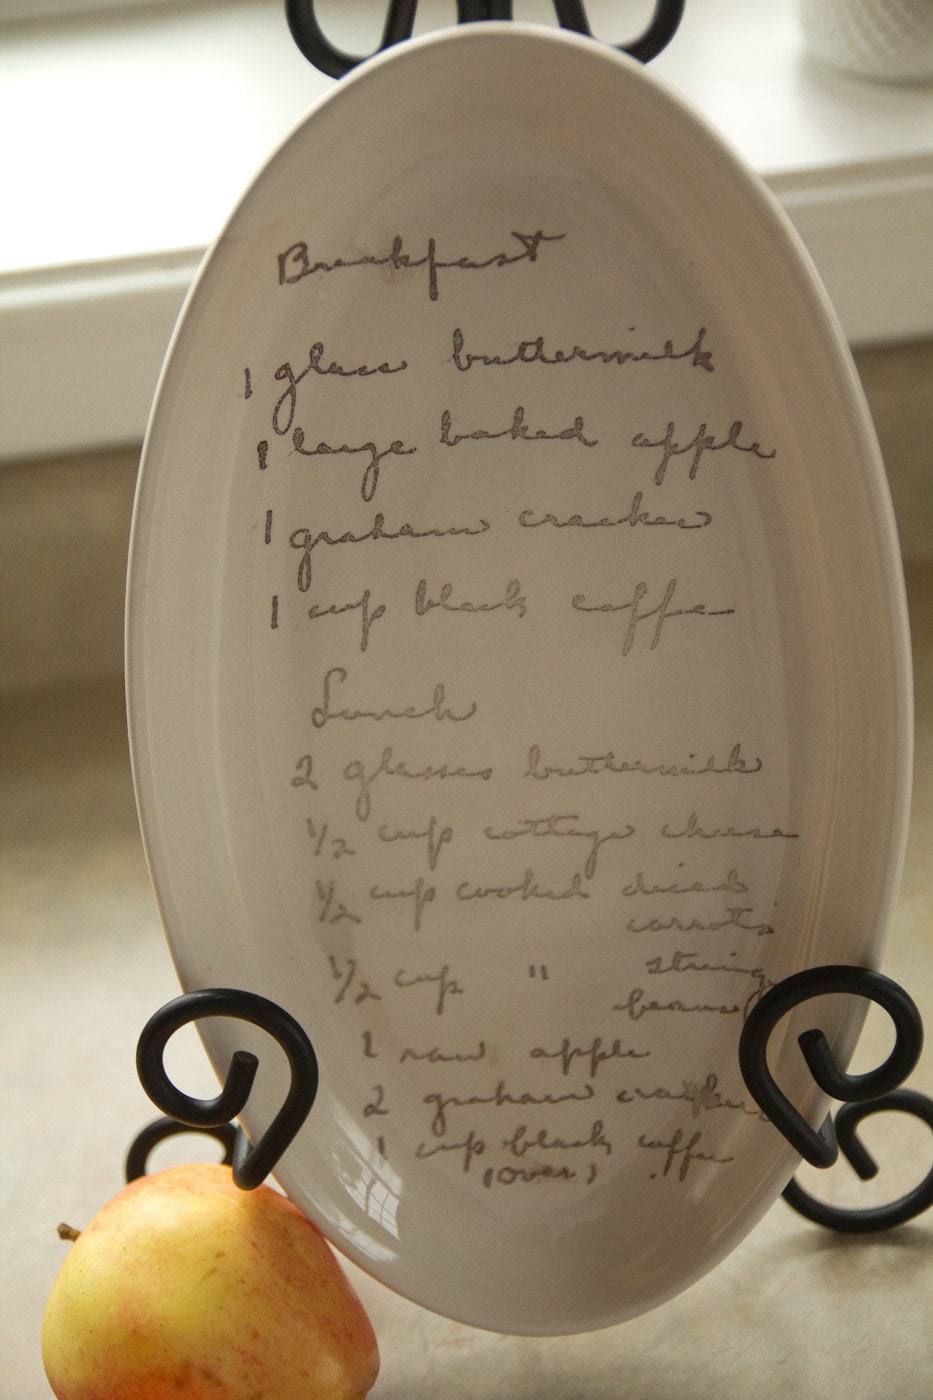 Breakfast
1 glass buttermilk
1 large baked apple
1 graham cracker
1 cup black coffee
Lunch
2 glasses buttermilk
1/2 cup cottage cheese
1/2 cup cooked diced
carrots
1/2 cup " string
beans
1 raw apple
2 graham crackers
1 cup black coffee
(over)